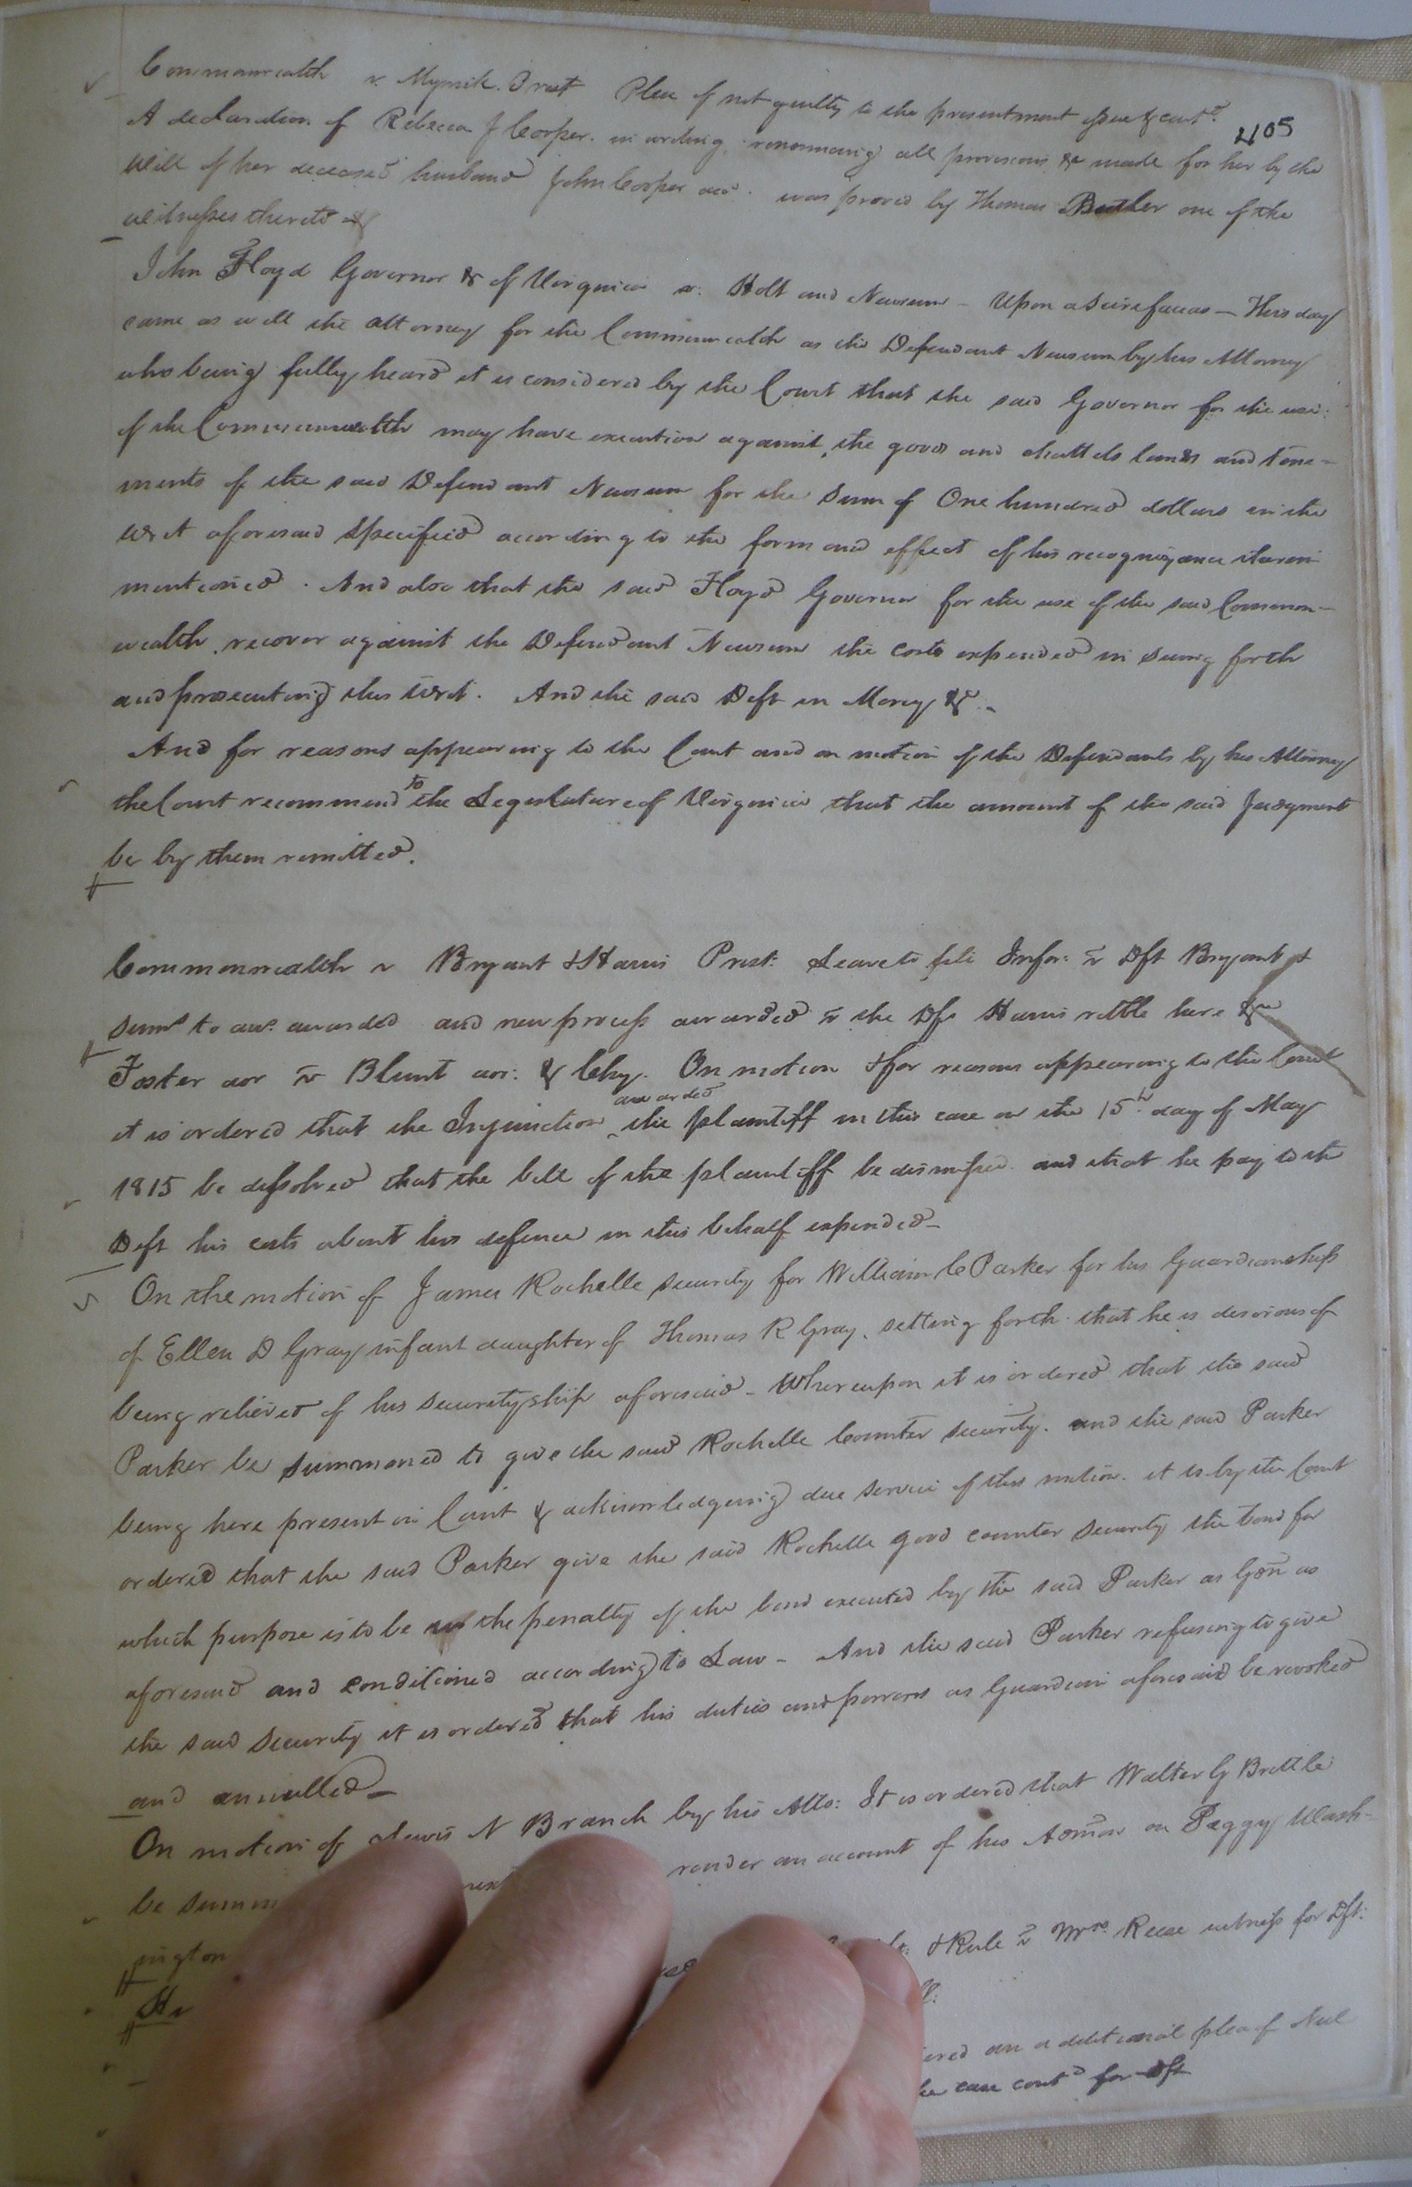 Commonwealth v. Myrick. Prest Plea of not guilty to the presentment issue & contd.
405
A declaration of Rebecca J Cooper in writing, renouncing all provisions &c made for her by the
Will of her deceased husband John Cooper decd. was proved by Thomas Butler one of the
witnesses thereto &c
John Floyd Governor &c of Virginia v. Holt and Newsum - Upon a Scire facias - This day
came as well the attorney for the Commonwealth as the Defendant Newsum by his Attorney
who being fully heard it is considered by the Court that the said Governor for the use
of the Commonwealth may have execution against the goods and chattels lands and tene-
ments of the said Defendant Newsum for the Sum of One hundred dollars in the
writ aforesaid Specified according to the form and effect of his recognizance therein
mentioned. And also that the said Floyd Governor for the use of the said Common-
wealth recover against the Defendant Newsum the costs expended in sueing forth
and prosecuting this writ. And the said Deft in Mercy &c.
And for reasons appearing to the Court and on motion of the Defendants by his Attorney
the Court recommend to the Legislature of Virginia that the amount of the said Judgment
be by them remitted.
Commonwealth v Bryant & Harris Prest: Leave to file Infor: v Dft Bryant &
Sums to ans. awarded and new process awarded v the Dft Harris rettle here &c
Foster aor v Blunt aor: &c Chy. On motion & for reasons appearing to the Court
it is ordered that the Injunction awarded the plaintiff in this case on the 15th day of May
1815 be dissolved that the bill of the plaintiff be dismissed and that he pay to the
Deft his costs about his defence in this behalf expended -
On the motion of James Rochelle security for William C Parker for his Guardianship
of Ellen D Gray infant daughter of Thomas R Gray, setting forth that he is desirous of
being relieved of his securityship aforesaid - Whereupon it is ordered that the said
Parker be summoned to give the said Rochelle Counter security. and the said Parker
being here present in Court & acknowledgeing due service of this motion. it is by the Court
ordered that the said Parker give the said Rochelle good counter security the bond for
which purpose is to be in the penalty of the bond executed by the said Parker as Gdn as
aforesaid and conditioned according to Law - And the said Parker refusing to give
the said Security it is ordered that his duties and powers as Guardian aforesaid be revoked
and annulled -
On motion of Lewis N Branch by his Atto: It is ordered that Walter G Brittle
be summ render an account of his Admon on Peggy Wash-
ington
& Rule v Mrs. Reese witness for Dft:
an additional plea of Nul
case contd for Dft